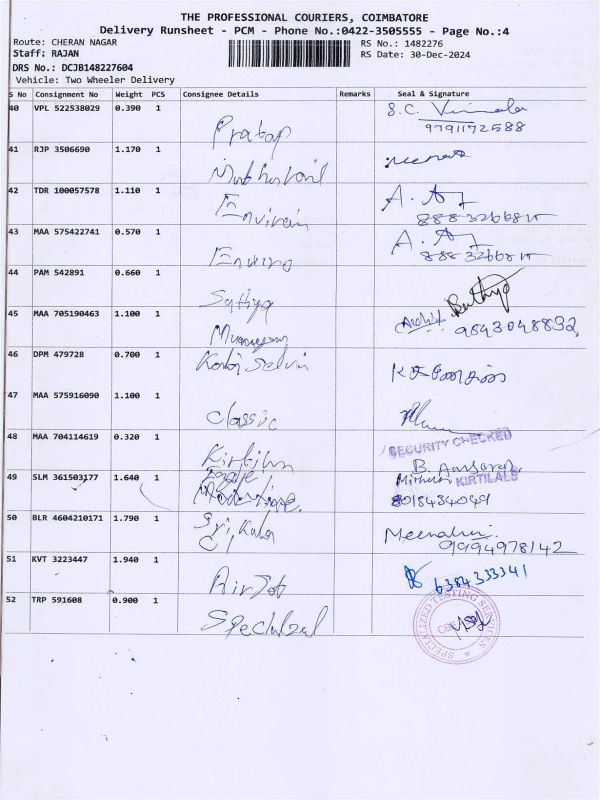 THE PROFESSIONAL COURIERS, COIMBATORE
Delivery Runsheet - PCM - Phone No.:0422-3505555 - Page No.:4
Route: CHERAN NAGAR RS No.: 1482276
Staff: RAJAN RS Date: 30-Dec-2024
DRS No.: DCJB148227604
Vehicle: Two Wheeler Delivery
S No Consignment No Weight PCS Consignee Details Remarks Seal & Signature
40 VPL 522538029 0.390 1 Pratap S.C. Vimala
9791172588
41 RJP 3506690 1.170 1
42 TDR 100057578 1.110 1 Envirain A. A
43 MAA 575422741 0.570 1 Enviro A. A
44 PAM 542891 0.660 1 Sathya Sathya
45 MAA 705190463 1.100 1 9843048832
46 DPM 479728 0.700 1 Kalai Selvi
47 MAA 575916090 1.100 1 Classic
48 MAA 704114619 0.320 1 Kirtilal SECURITY CHECKED
KIRTILALS
49 SLM 361503177 1.640 1 Mithun
8018434049
50 BLR 4604210171 1.790 1 Sri Kala Meenakshi
9994978142
51 KVT 3223447 1.940 1 Air Job 6384333341
52 TRP 591608 0.900 1 SPECIALIZED TESTING SERVICES